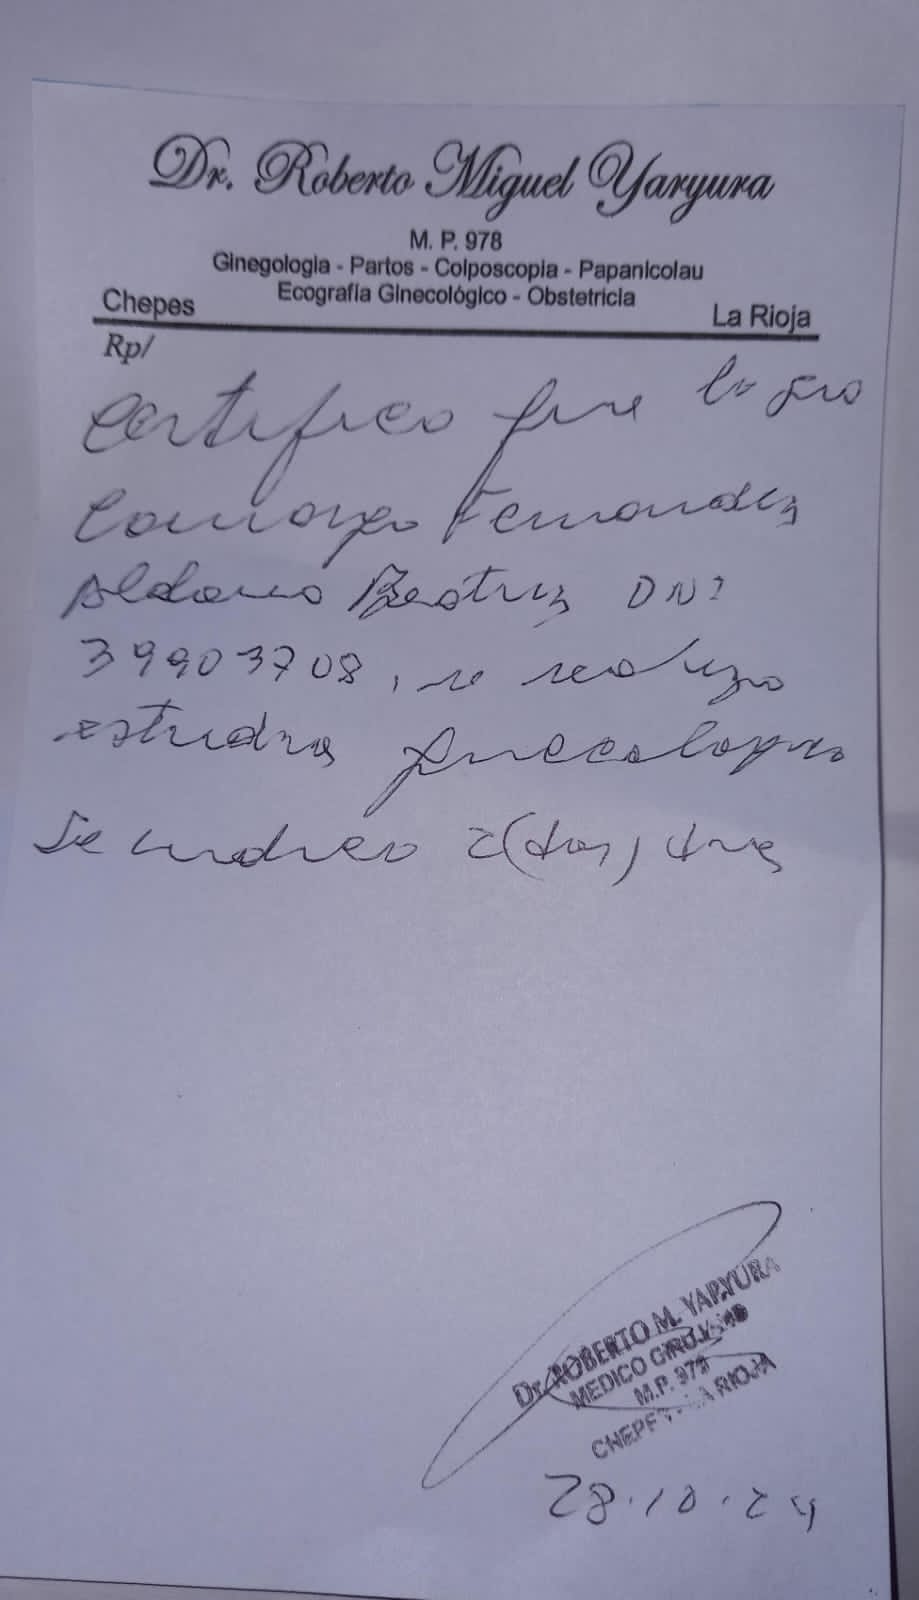 Dr. Roberto Miguel Yaryura
M. P. 978
Ginegologia - Partos - Colposcopia - Papanicolau
Ecografía Ginecológico - Obstetricia
Chepes
La Rioja
Rp/
Certifico que la
Fernandez
Aldana Beatriz DNI
39903708, se realizo
estudios ginecologico
Se indico 2 (dos) dias
Dr. ROBERTO M. YARYURA
MEDICO CIRUJANO
M.P. 978
CHEPES - LA RIOJA
28.10.24